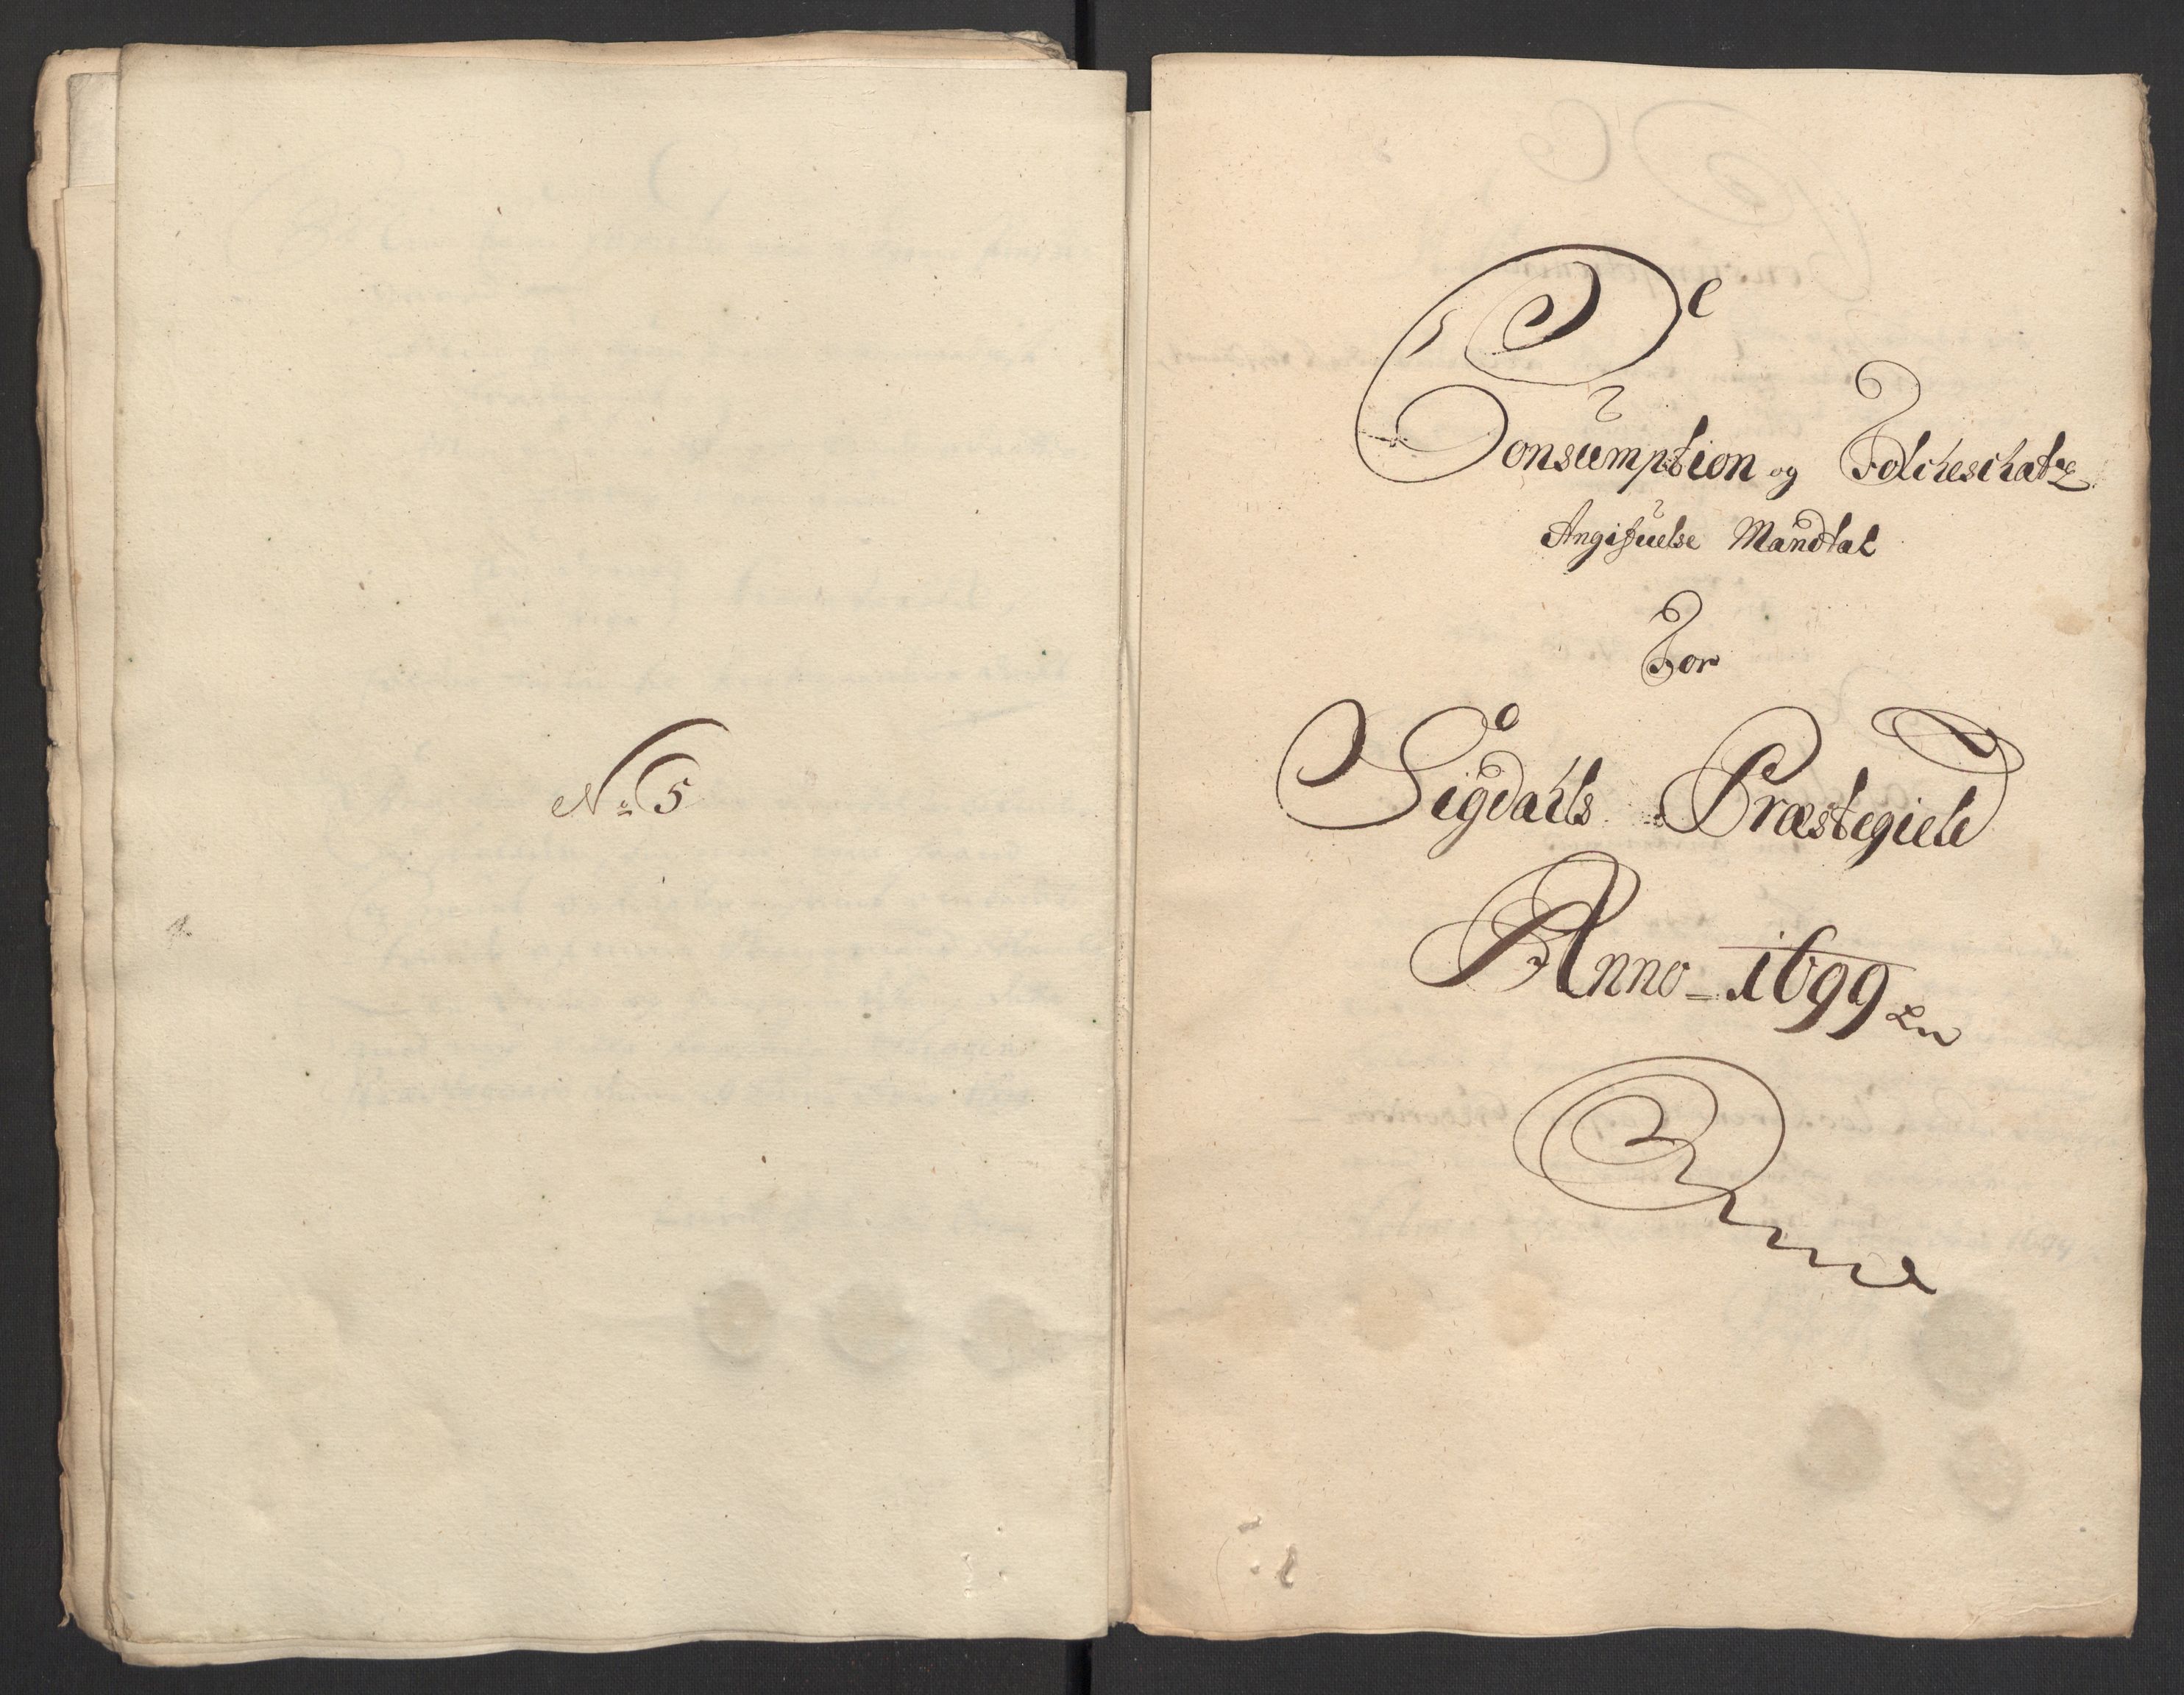 No 5
Consumption og Folcheschatz
Angifuelse Mandtal
For
Sigdahls Præstegield
Anno 1699